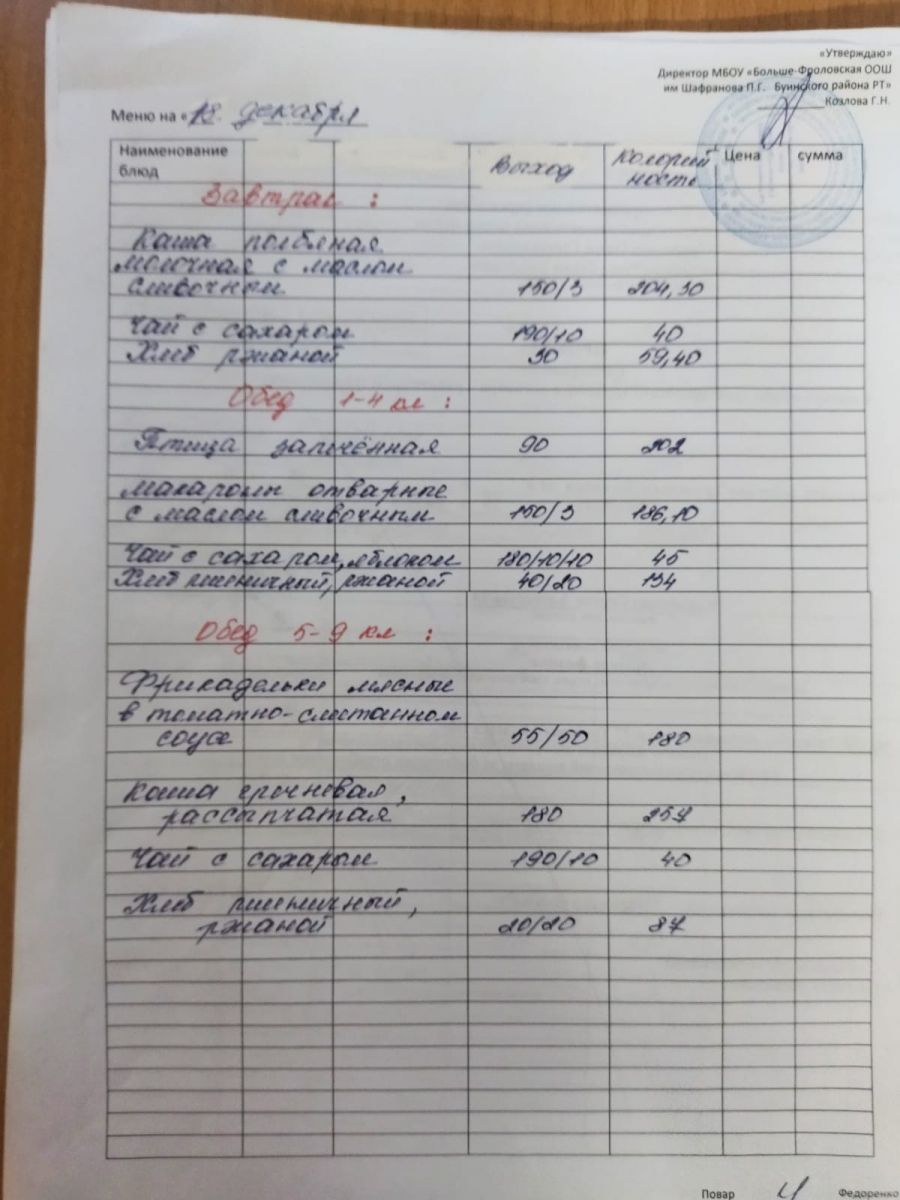 «Утверждаю»
Директор МБОУ «Больше-Фроловская ООШ
им Шафранова П.Г. Буинского района РТ»
Козлова Г.Н.
Меню на «18. декабря
Наименование блюд Выход Колорий ность Цена сумма
Завтрак :
Каша полбяная
молочная с маслом
сливочным 150/3 204,30
Чай с сахаром 190/10 40
Хлеб ржаной 30 59,40
Обед 1-4 кл :
Птица запечённая 90 202
Макароны отварные
с маслом сливочным 150/3 186,10
Чай с сахаром, яблоком 180/10/10 45
Хлеб пшеничный, ржаной 40/20 134
Обед 5-9 кл :
Фрикадельки мясные
в томатно-сметанном
соусе 55/50 180
Каша гречневая,
рассыпчатая 180 257
Чай с сахаром 190/10 40
Хлеб пшеничный,
ржаной 20/20 87
Повар Федоренко